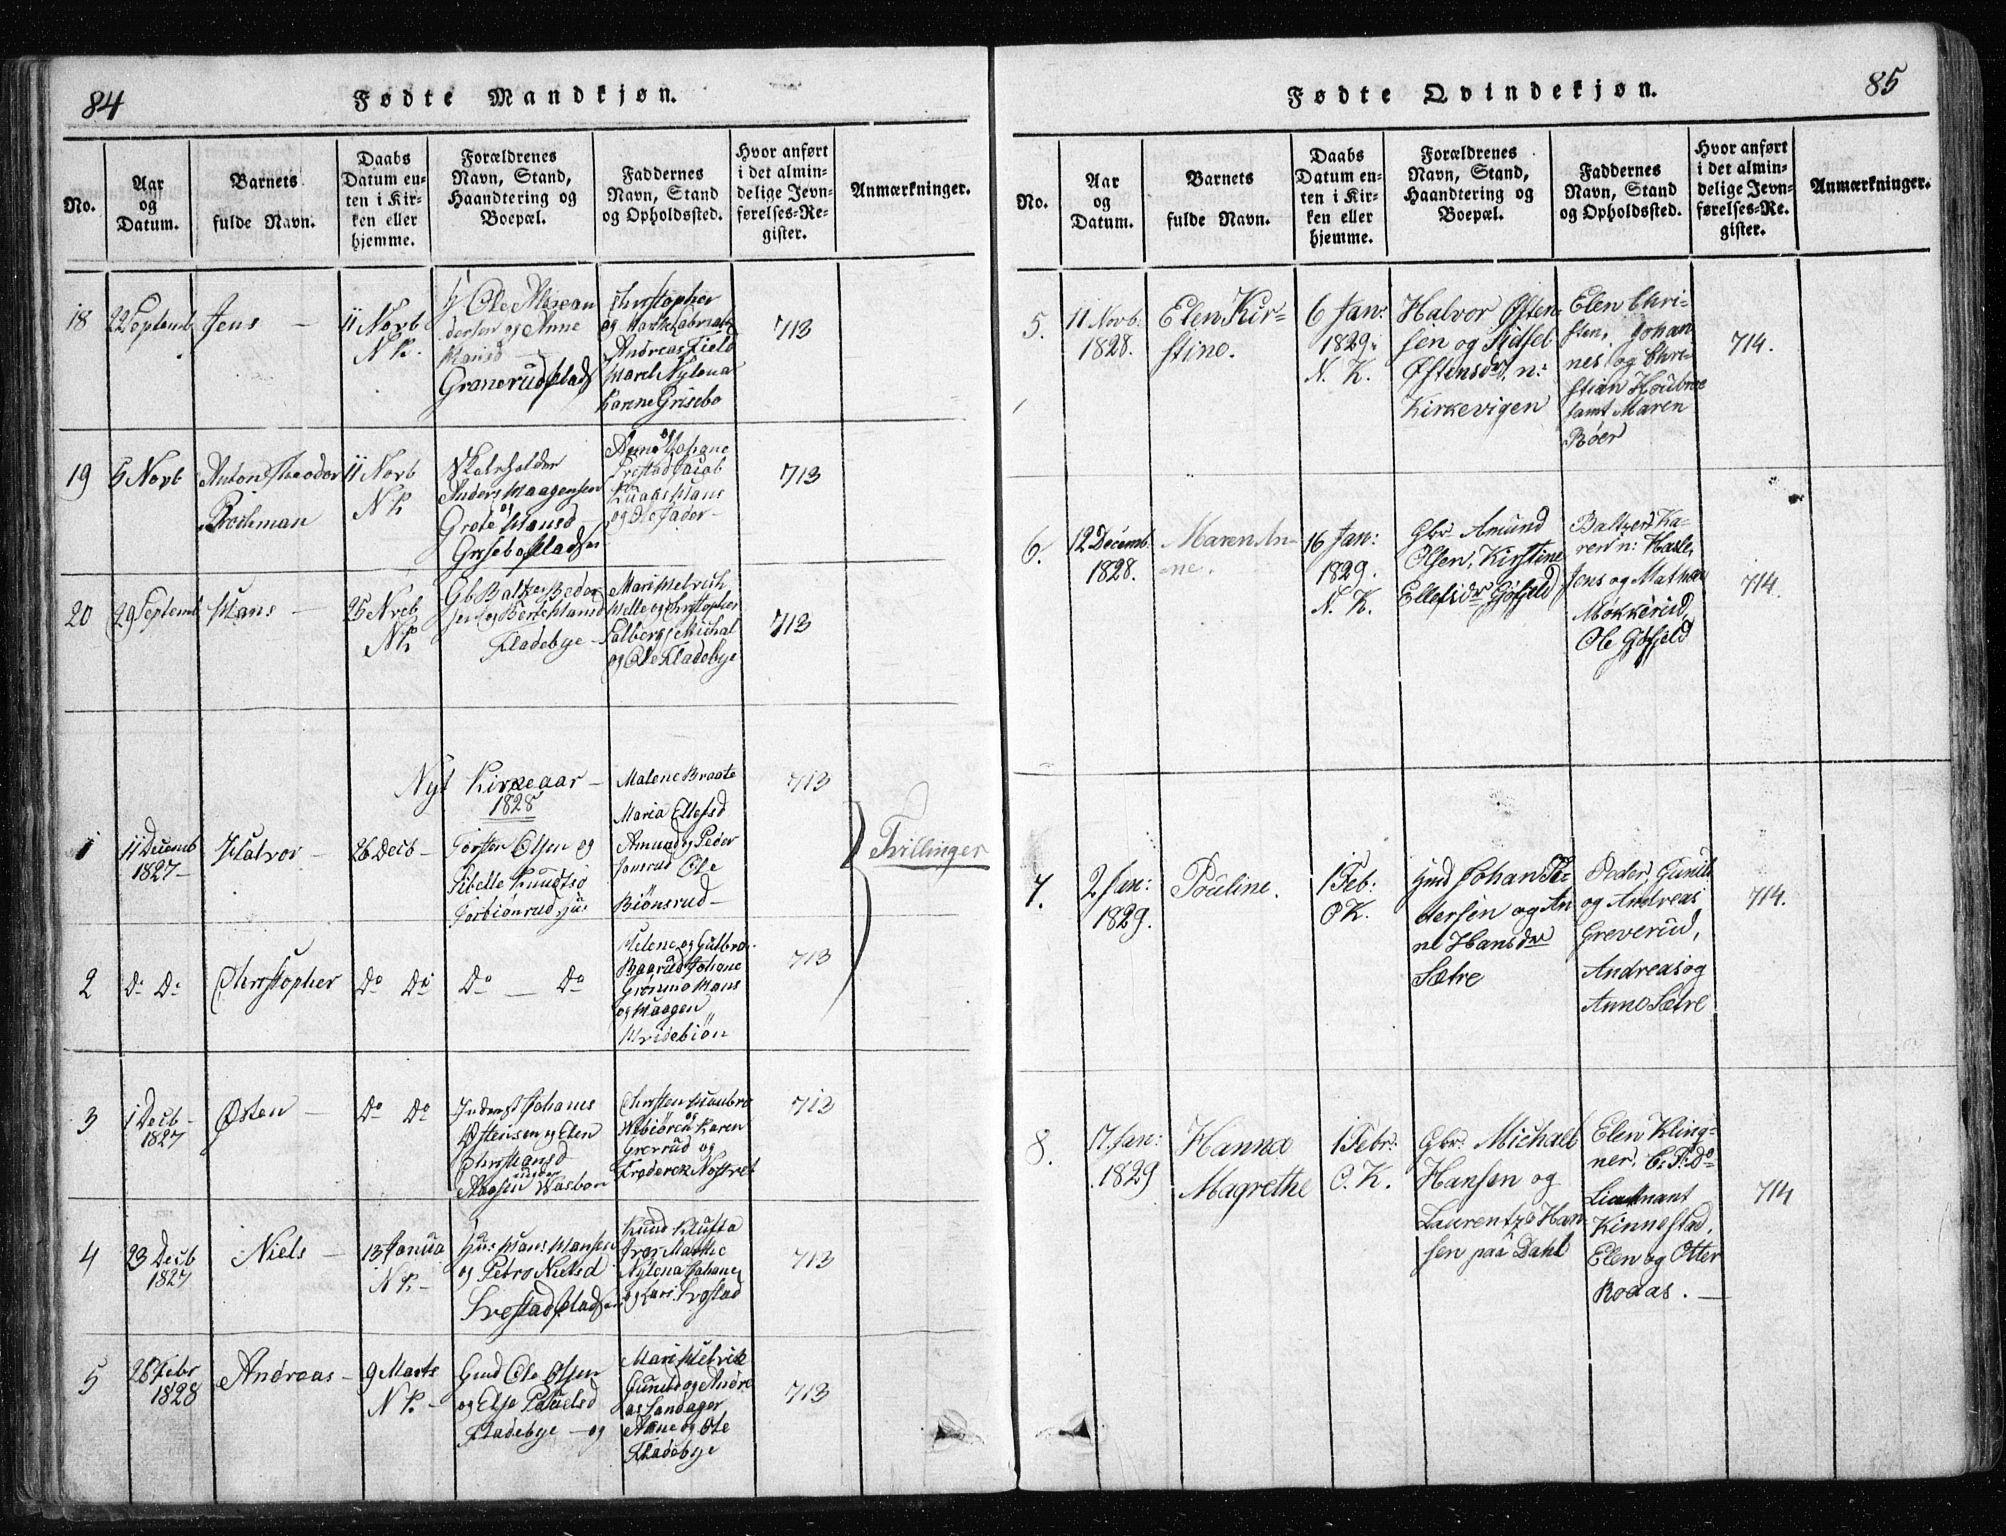 84
Fødte Mandkjøn.
No.
Aar
og
Datum.
Barnets
fulde Navn.
Daabs
Datum en-
ten i Kir-
ken eller
hjemme.
Forældrenes
Navn, Stand,
Haandtering og
Boepæl.
Faddernes
Navn, Stand
og Opholdssted.
Hvor anført
i det almin-
delige Jevn-
førelses-Re-
gister.
Anmærkninger.
18
22 Septemb
Jens —
11 Novb
N K.
Ole Alexan
dersen og Anne
Hansd
Granerudplads
Christopher
Andreas Field
Marel Nylena
Karine Grisebo
713
19
5 Novb
Anton Theodor
Prochman
11 Novb
N K
Skoleholder
Anders Haagensen
og
Grete Hansd
Grisebopladsen
og
Anne Johane
Trostad Jacob
Hans
og Ole Fader-
713
20
29 Septemb
Hans —
25 Novb
N K
Gb Baltzer Peder
sen og Berte Hansd
Fladebye -
Mari Melvich
Helle og Christopher
Solberg Michal
og Ole Fladebye
713
Nyt Kirkeaar —
1828
1
11 Decemb
1827 —
Halvor —
26 Decb —
Torsten Olsen og
Sibelle Knudtsd
Torbiönrud
Malene Braate
Maria Ellefsd
Amund og Peder
Jonsrud Ole
Biönsrud —
713
Tvillinger
2
Do Do
Christopher
Do Do
Do — Do
Helene og Gulbra
Baarud Johane
Grönmo Hans
og Haagen
Krisebiön
713
3
1 Decb -
1827
Østen —
Do Do
Inderst Johanes
Østensen og Elen
Christiansd
Wasbon
Christen Haubro
og
Webiören Karen
Greverud og
Frederek Nostvet
713
4
23 Decb
1827
Niels —
13 Janua
N K —
Huus Hans Hansen
og Petro Nielsd
Trostadpladsen
Knud Klufta
Iver Marthe
Nylena Johane
og Lars Trostad
713
5
28 Febr
1828
Andreas —
9 Marts
N K. —
Gmd Ole Olsen
og Else Paulsd
Fladebye — og
Mari Melvik
Gunild og Andre
as Sandager
Anne og Ole
Fladebye
713
85
Fødte Qvindekjøn.
No.
Aar
og
Datum.
Barnets
fulde Navn.
Daabs
Datum en-
ten i Kir-
ken eller
hjemme.
Forældrenes
Navn, Stand,
Haandtering og
Boepæl.
Faddernes
Navn, Stand
og Opholdssted.
Hvor anført
i det almin-
delige Jevn-
førelses-Re-
gister.
Anmærkninger.
5.
11 Novb.
1828.
Elen Kir-
stine.
6 Jan:
1829.
N. K.
Halvor Østen
sen og Sidsel
Østensdr, n:
Kirkevigen
Elen Chri-
sten, Johan
nes og Chri-
stian Houbroe
samt Maren
Røer
714.
6.
12 Decemb.
1828.
Maren An-
ne.
16 Jan:
1829.
N. K.
Gbr Amund
Olsen, Kirstine
Ellefsdr Gjøfjeld
Baltzer, Ka-
ren n: Hasle,
Jens og Mathea
Mokkerud,
Ole Gjøfjeld
714.
7.
2 Jan:
1829.
Pouline.
1 Feb:
O K.
Gmd Johan Pe-
dersen og An
ne Hansdr
Sætre
Peder, Gunild
og Andreas
Greverud,
Andreas og
Anne Sætre
714.
8.
17. Jan:
1829
Hanna
Magrethe
1 Febr:
O. K.
Gbr: Michael
Hansen og
Laurentze Han
sen paa Dahl
Elen Kling-
ner,
Lieutnant
Kinnestad,
Elen og Otter
Rodas. —
714